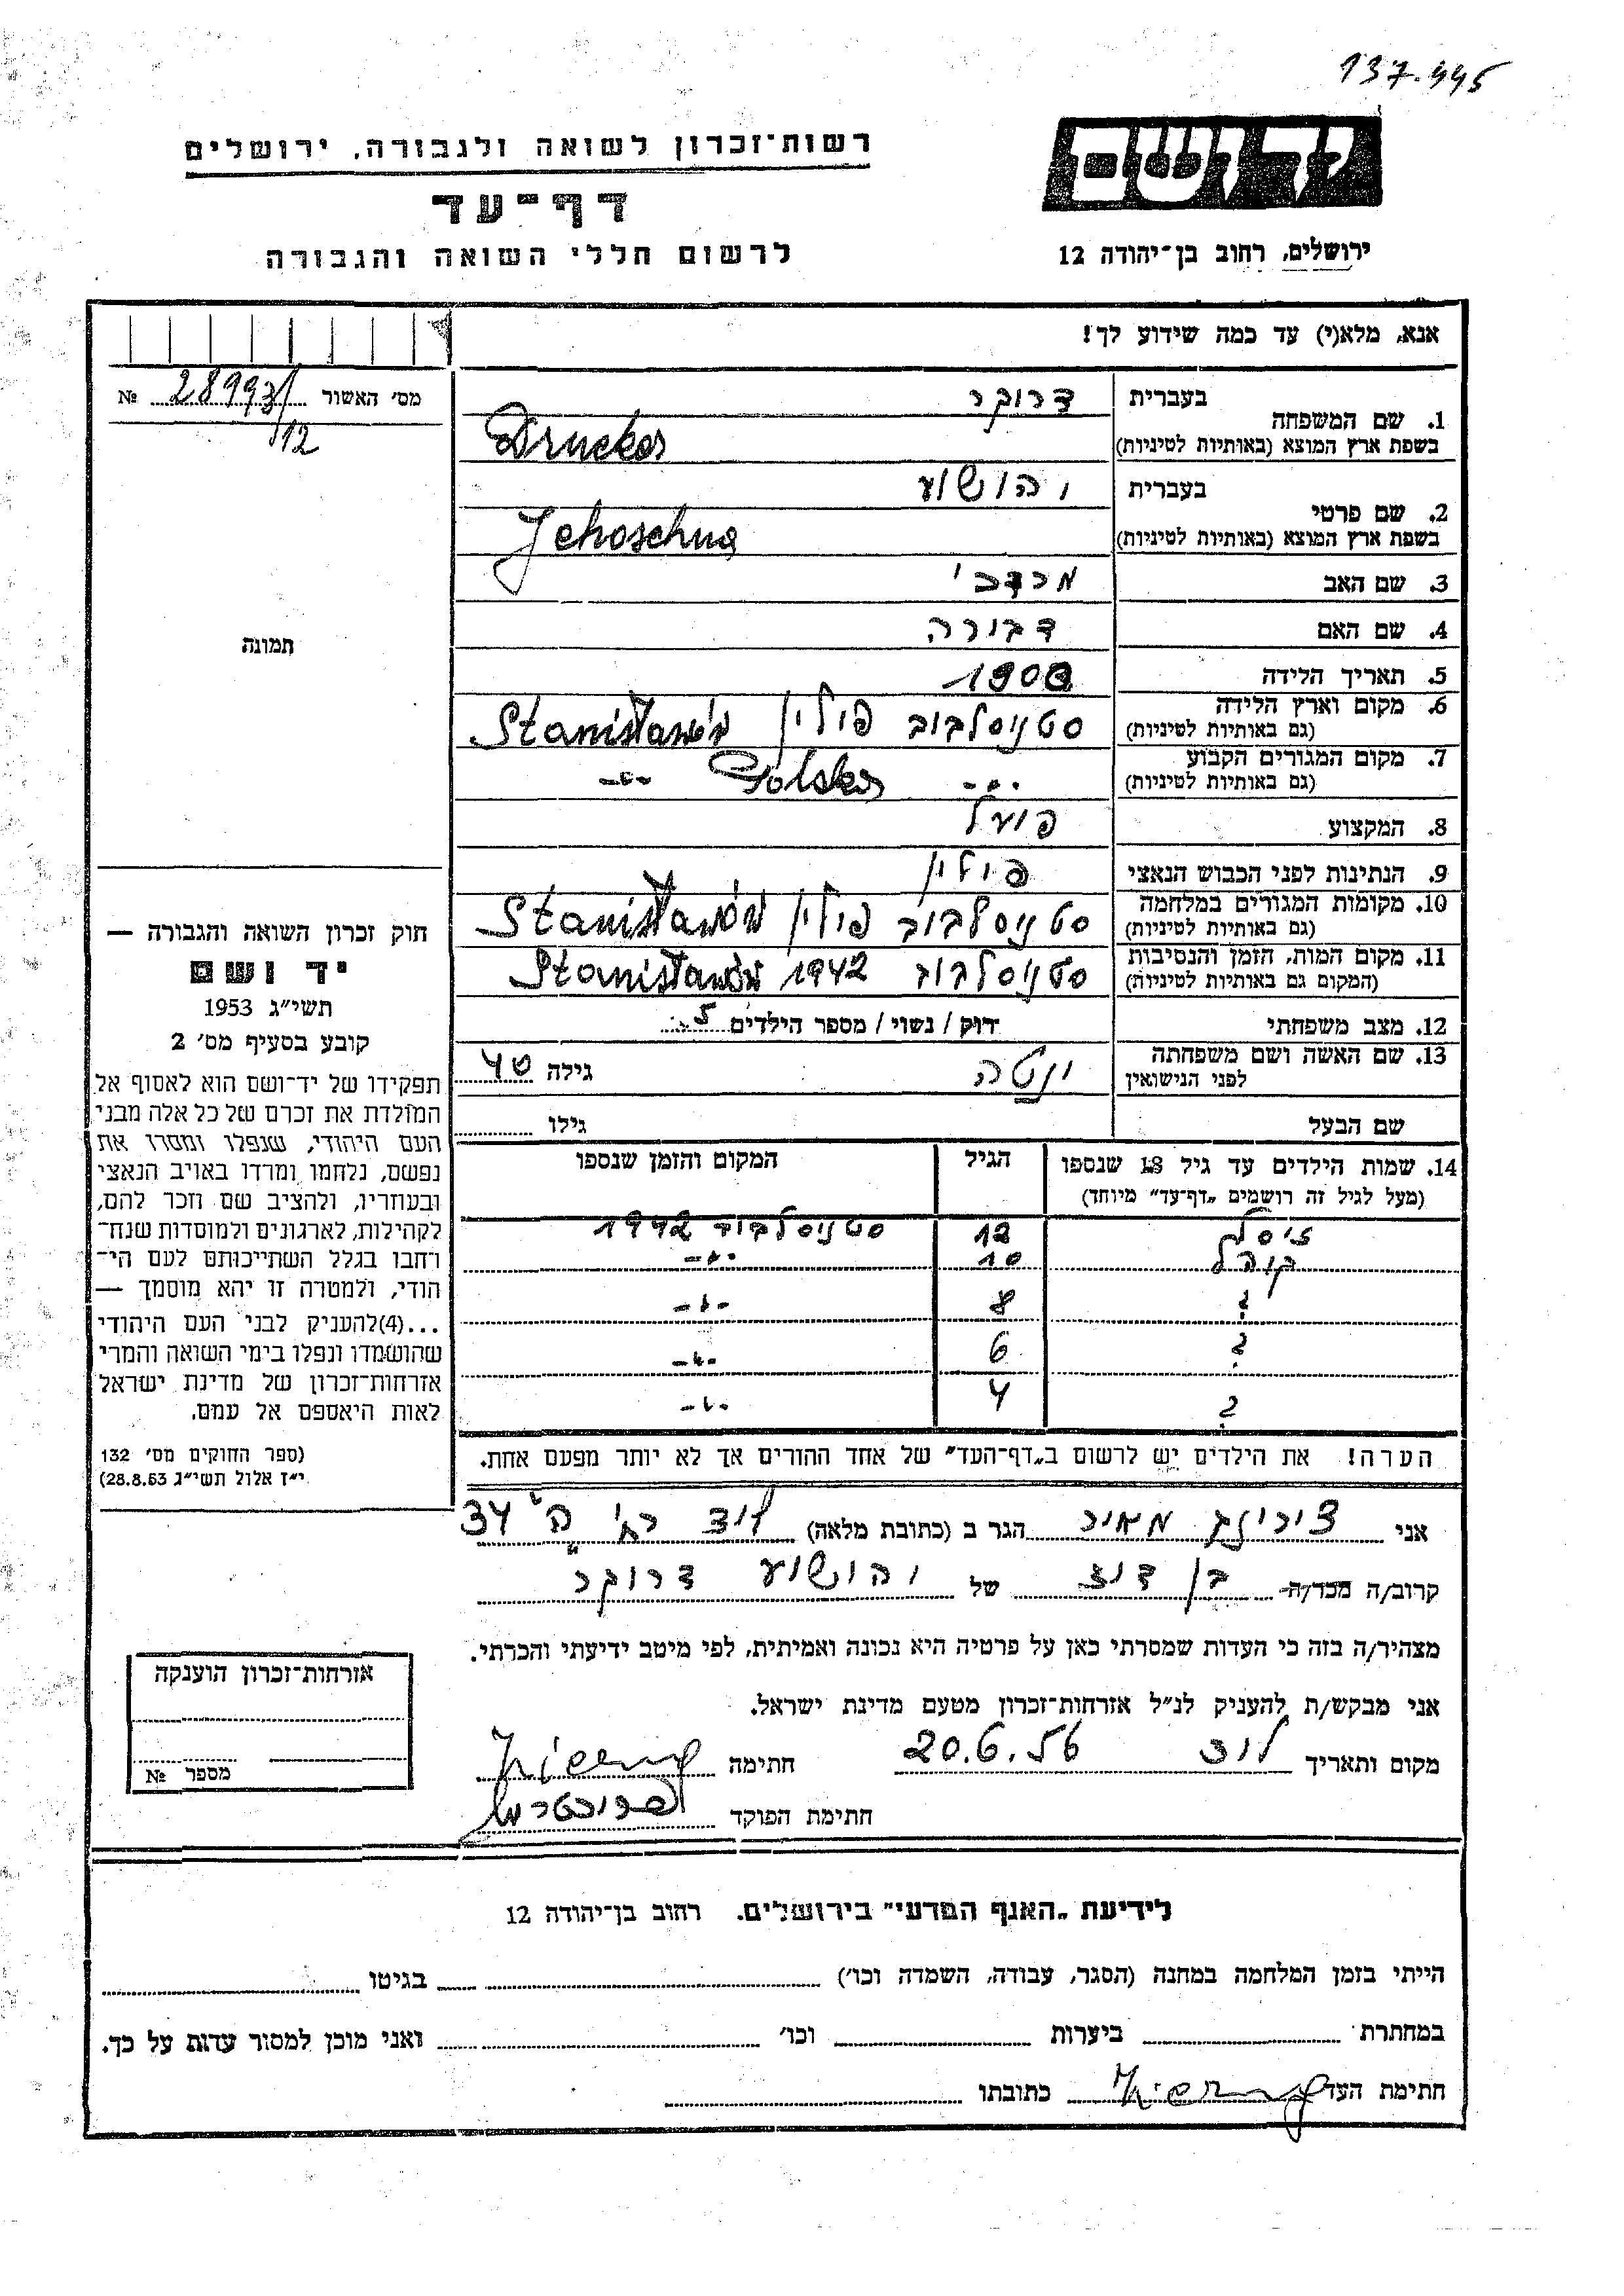 137.445
יד ושם
רשות־זכרון לשואה ולגבורה, ירושלים
דף־עד
לרשום חללי השואה והגבורה
ירושלים, רחוב בן־יהודה 12
אנא, מלא(י) עד כמה שידוע לך!
מס' האשור № 289931
/12
תמונה
חוק זכרון השואה והגבורה —
יד ושם
תשי"ג 1953
קובע בסעיף מס' 2
תפקידו של יד־ושם הוא לאסוף אל
המולדת את זכרם של כל אלה מבני
העם היהודי, שנפלו ומסרו את
נפשם, נלחמו ומרדו באויב הנאצי
ובעוזריו, ולהציב שם וזכר להם,
לקהילות, לארגונים ולמוסדות שנח־
רחבו בגלל השתייכותם לעם הי־
הודי, ולמטרה זו יהא מוסמך —
...(4)להעניק לבני העם היהודי
שהושמדו ונפלו בימי השואה והמרי
אזרחות־זכרון של מדינת ישראל
לאות היאספם אל עמם.
(ספר החוקים מס' 132
י"ז אלול תשי"ג 28.8.53)
בעברית דרוקר
1. שם המשפחה
בשפת ארץ המוצא (באותיות לטיניות) Drucker
בעברית יהושוע
2. שם פרטי
בשפת ארץ המוצא (באותיות לטיניות) Jehoschua
3. שם האב מרדכי
4. שם האם דבורה
5. תאריך הלידה 1900
6. מקום וארץ הלידה סטניסלבוב פולין Stanisławów
(גם באותיות לטיניות)
7. מקום המגורים הקבוע -"- Polska -"-
(גם באותיות לטיניות)
8. המקצוע פועל
9. הנתינות לפני הכבוש הנאצי פולין
10. מקומות המגורים במלחמה סטניסלבוב פולין Stanisławów
(גם באותיות לטיניות)
11. מקום המות, הזמן והנסיבות סטניסלבוב 1942 Stanisławów
(המקום גם באותיות לטיניות)
12. מצב משפחתי רוק / נשוי / מספר הילדים 5
13. שם האשה ושם משפחתה ינטה גילה 40
לפני הנישואין
שם הבעל גילו
14. שמות הילדים עד גיל 18 שנספו הגיל המקום והזמן שנספו
(מעל לגיל זה רושמים „דף־עד" מיוחד)
זיסל 12 סטניסלבוב 1942
קהל 10 -"-
? 8 -"-
? 6 -"-
? 4 -"-
הערה! את הילדים יש לרשום ב„דף־העד" של אחד ההורים אך לא יותר מפעם אחת.
אני צירינג מאיר הגר ב (כתובת מלאה) לוד רח' ה' 34
קרוב/ה מכר/ה בן דוד של יהושוע דרוקר
מצהיר/ה בזה כי העדות שמסרתי כאן על פרטיה היא נכונה ואמיתית, לפי מיטב ידיעתי והכרתי.
אני מבקש/ת להעניק לנ"ל אזרחות־זכרון מטעם מדינת ישראל.
מקום ותאריך לוד 20.6.56 חתימה
חתימת הפוקד
אזרחות־זכרון הוענקה
מספר №
לידיעת „האגף המדעי" בירושלים. רחוב בן־יהודה 12
הייתי בזמן המלחמה במחנה (הסגר, עבודה, השמדה וכו') בגיטו
במחתרת ביערות וכו' ואני מוכן למסור עדות על כך.
חתימת העד כתובתו